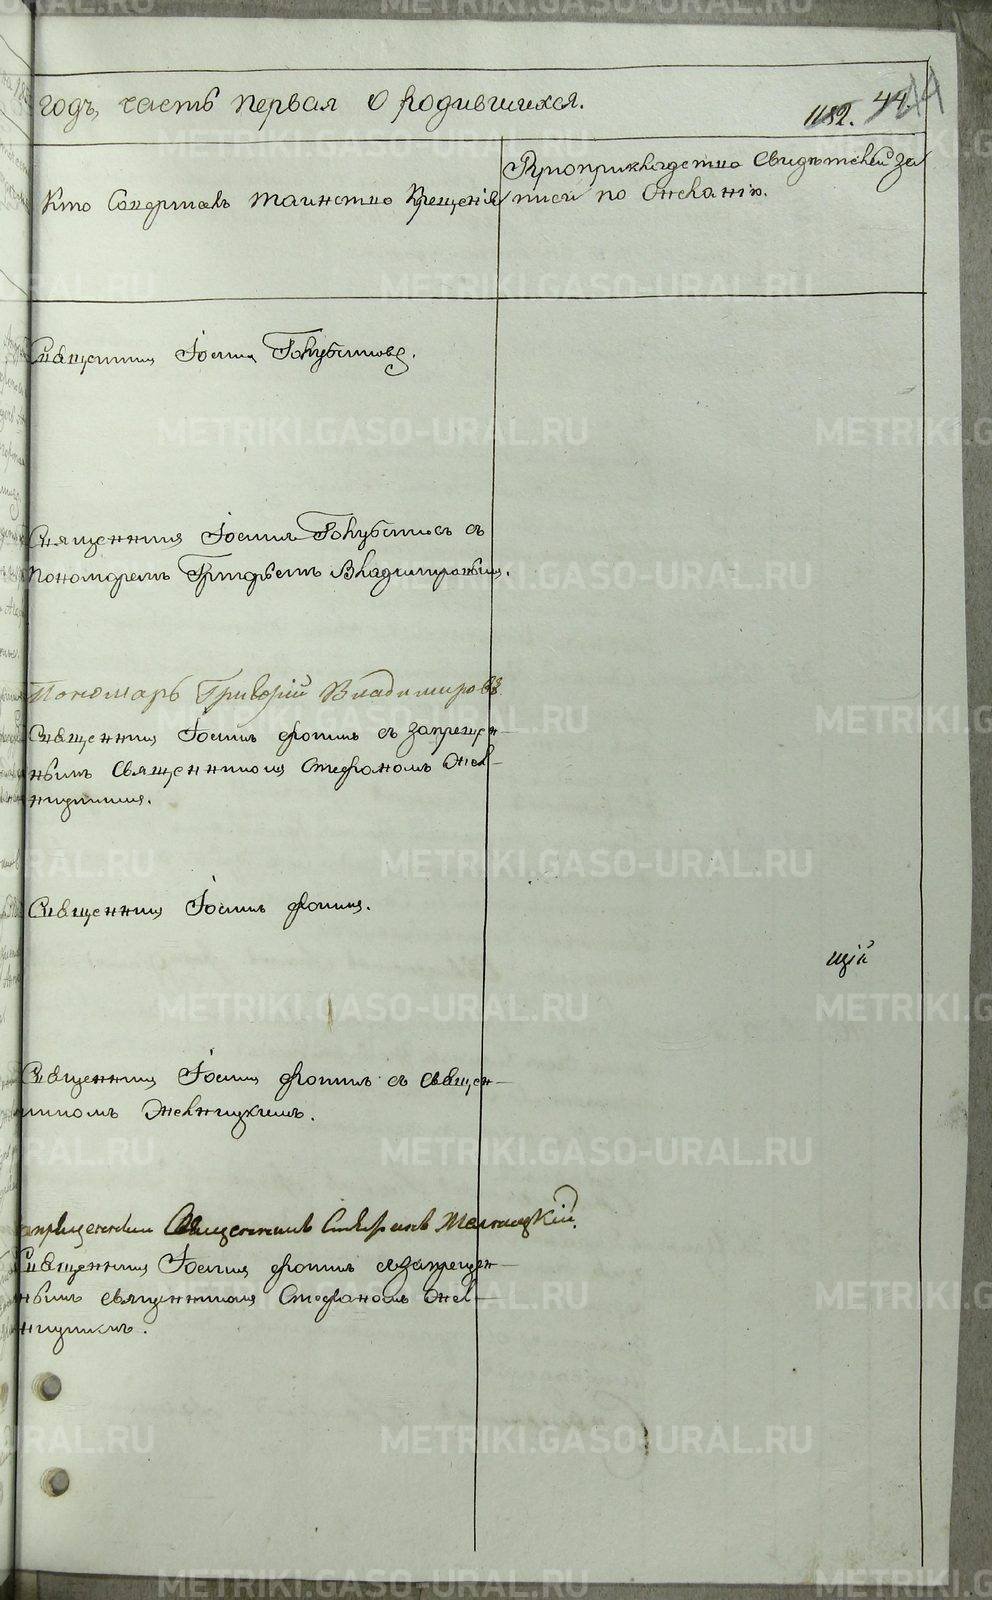 годъ, часть первая о родившихся.
1182. 44. 44
Кто Совершалъ таинство Крещенія
Рукоприкладство Свидѣтелей за
писи по желанію.
Священникъ Іоаннъ Голубчиковъ.
Священникъ Іоаннъ съ
Пономаремъ Григорьемъ Владимировымъ.
Пономарь Григорій Владимировъ
Священникъ Іоаннъ Фотинъ съ запрещен-
нымъ Священникомъ Стефаномъ
Священникъ Іоаннъ Фотинъ.
щій
Священникъ Іоаннъ Фотинъ съ Священ-
никомъ
Священникъ Стефанъ
Священникъ Іоаннъ Фотинъ съ запрещен-
нымъ священникомъ Стефаномъ
METRIKI.GASO-URAL.RU